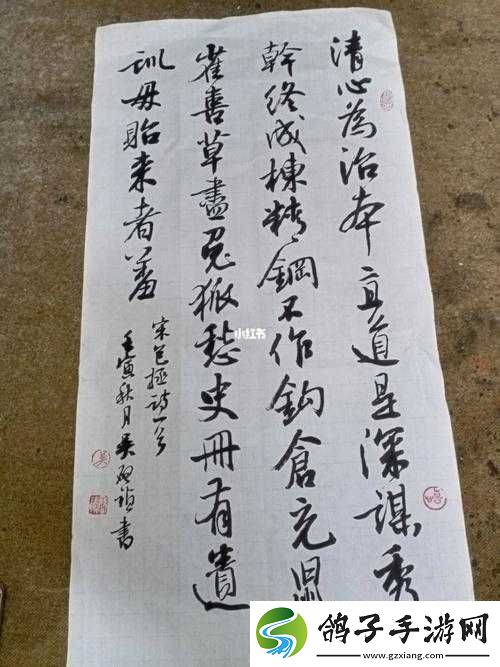 清心為治本直道是深謀秀
幹終成棟精鋼不作鈎倉充鼠
雀喜草盡兔狐愁史冊有遺
訓毋貽来者羞
宋包拯詩一首
壬寅秋月吴書
小红书
鸽子手游网
www.gzxiang.com